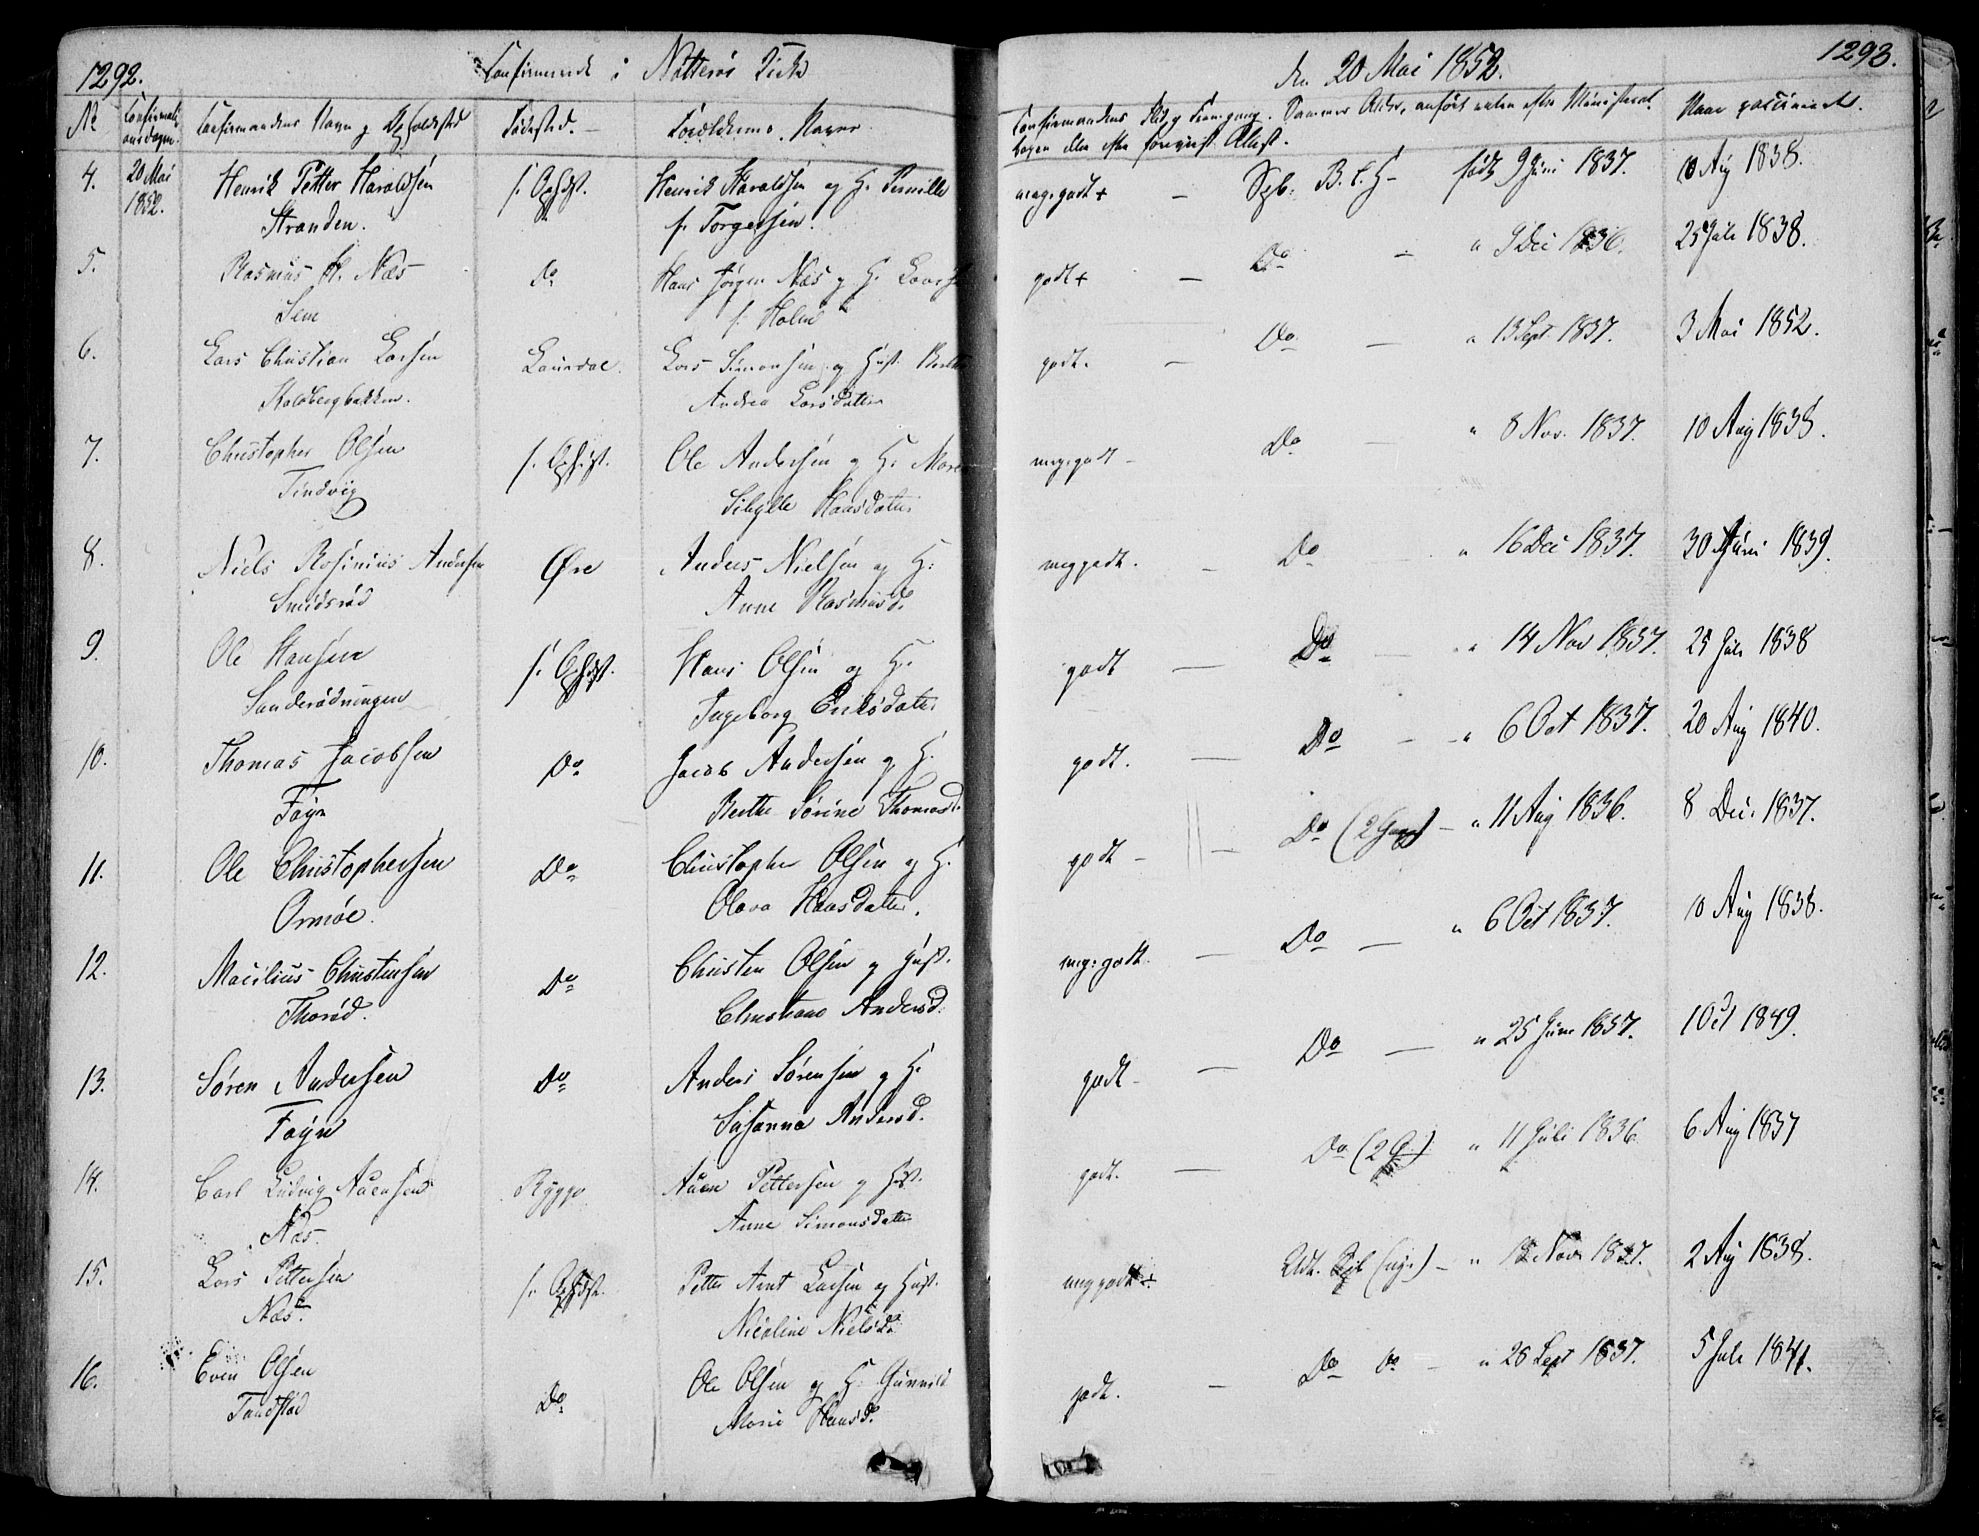 1292.
Confirmerede i Nøtterøe Kirke
No Confirmationsdagen. Confirmandens Navn og Opholdsted Fødested. Forældrenes Navne
4. 20 Mai 1852. Henrik Petter Haraldsen f. Opholdst. Henrik Haraldsen og H. Pernille
Stranden. f. Torgersen.
5. Rasmus H. Næs Do Hans Jørgen Næs og H.
Sem f. Holm
6. Lars Christian Larsen Laurdal. Lars Simonsen og Hust.
Kaldbergbakken. Andrea Larsdatter
7. Christopher Olsen f. Opholdst. Ole Andersen og H. Maren
Tindvig Sibylle Hansdatter
8. Niels Rosinius Andersen Øre Anders Nielsen og H:
Smidsrød Anne Rasmusd.
9. Ole Hansen f. Opholdst. Hans Olsen og H.
Sanderødningen Ingeborg Eriksdatter
10. Thomas Jacobsen Do Jacob Andersen og H.
Føyn Berthe Sørine Thomasd.
11. Ole Christophersen Do Christopher Olsen og H.
Ormøe. Olava Hansdatter.
12. Macilius Christensen Do Christen Olsen og Hust.
Thorød. Christiane Andersd.
13. Søren Andersen Do Anders Sørensen og H.
Føyn Susanna Andersd.
14. Carl Ludvig Auensen Rygge Auen Pettersen og Hust.
Næs. Anne Simonsdatter
15. Lars Pettersen f. Opholdst. Petter Arnt Larsen og Hust.
Næs. Nicoline Nielsd.
16. Even Olsen Do Ole Olsen og H. Gunnild
Marie Hansd.
den 20 Mai 1852. 1293.
Confirmandens Flid og Fremgang. Sammes Alder, anført enten efter Ministerial Naar vaccineret.
bogen eller efter forevist Attest.
meg.godt + — Sgb. B. f. H — født 9 Juni 1837. 10 Aug 1838.
godt + — Do — " 9 Dec 1836. 25 Juli 1838.
godt. — Do — " 13 Sept. 1837. 3 Mai 1852.
meg.godt — Do — " 8 Nov. 1837. 10 Aug 1838.
meg godt. — Do " 16 Dec 1837. 30 Juni 1839.
godt — Do — " 14 Nov 1837. 25 Juli 1838
godt. — Do — " 6 Oct 1837. 20 Aug 1840.
godt — — Do (2 Gange) — " 11 Aug 1836. 8 Dec. 1837.
meg: godt. — Do — " 6 Oct 1837. 10 Aug 1838.
godt — — Do — " 25 Juni 1837. 1 Oct 1849.
godt. — Do (2 G.) " 11 Juli 1836 6 Aug 1837
meg godt ÷ Udt. — " Nov 1837. 2 Aug 1838.
godt. — Do Do — " 26 Sept 1837. 5 Juli 1841.